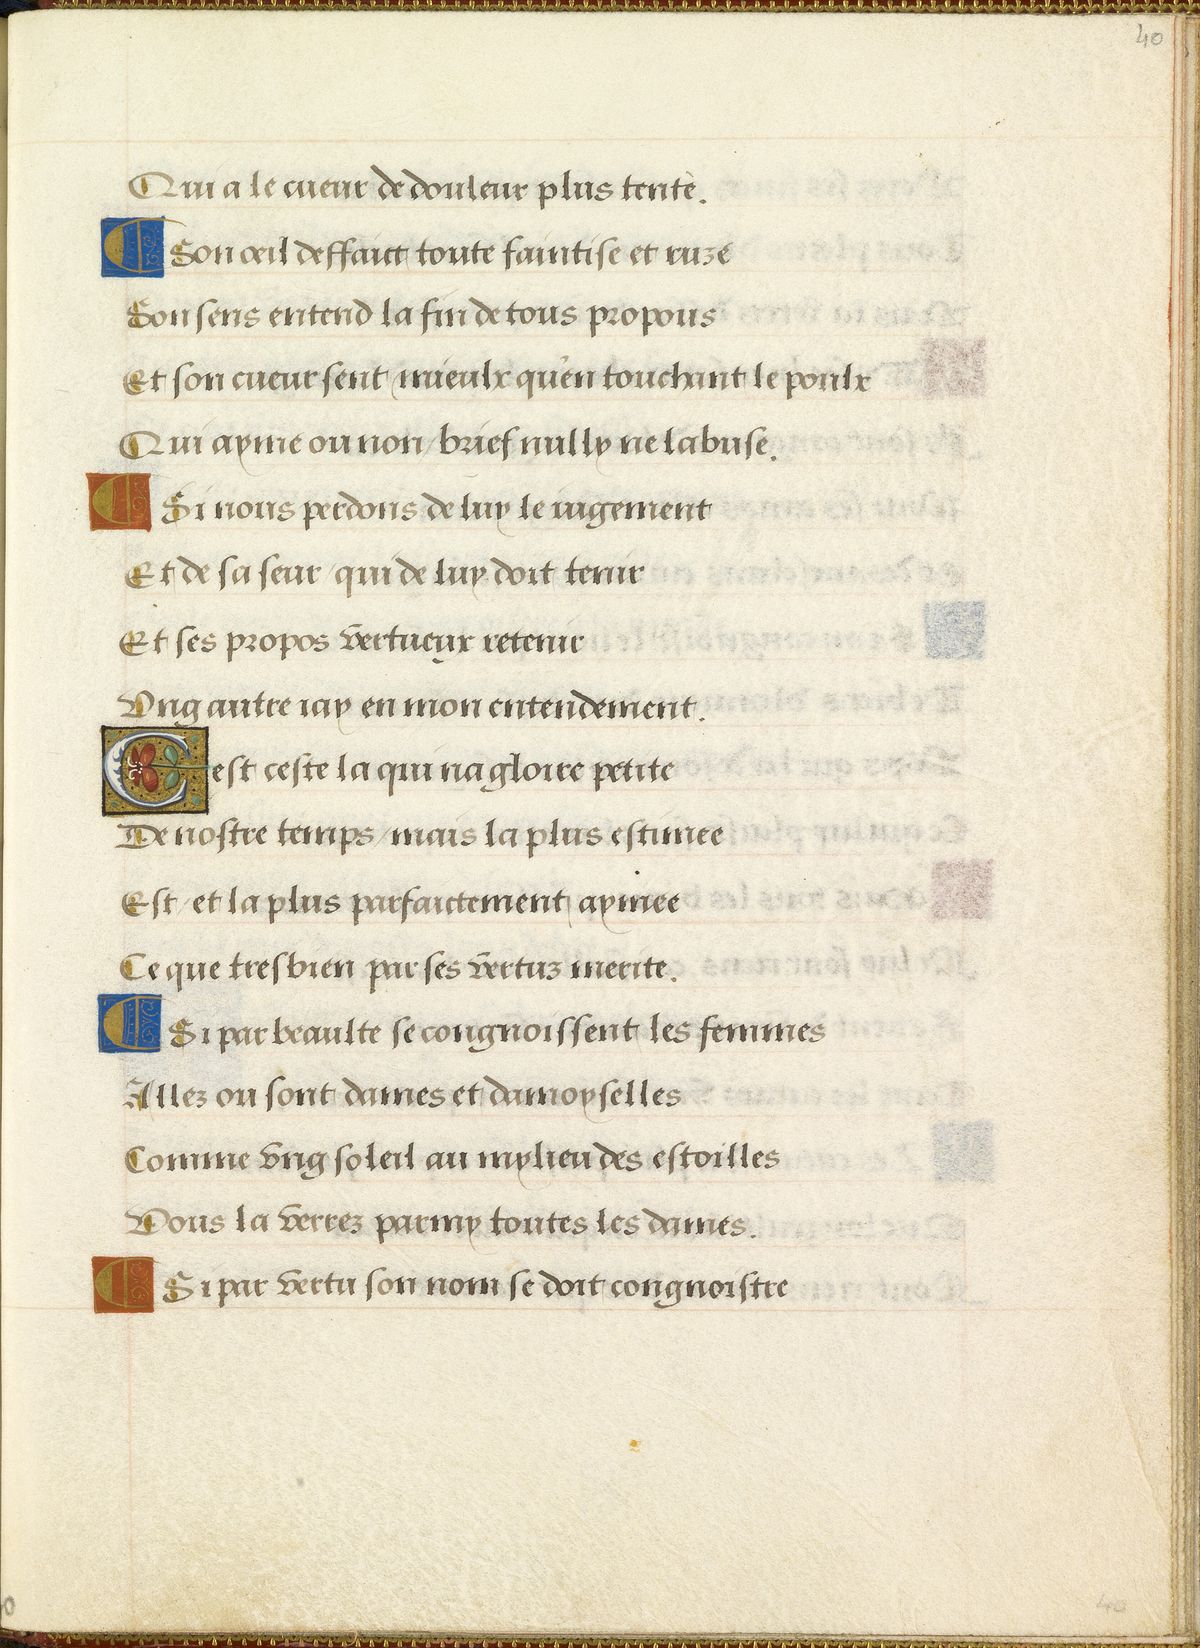 40
Qui a le cueur de douleur plus tente.
Son oeil deffaict toute faintise et ruze
Son sens entend la fin de tous propous
Et son cueur sent mieulx qu'en touchant le poulx
Qui ayme ou non / brief nully ne labuse.
Si nous perdons de luy le iugement
Et de sa seur / qui de luy doit tenir
Et ses propos vertueux retenir
Ung autre iay en mon entendement.
Cest ceste la qui na gloire petite
De nostre temps / mais la plus estimee
Est / et la plus parfaictement aymee
Ce que tresbien par ses vertuz merite.
Si par beaulte se congnoissent les femmes
Allez ou sont dames et damoyselles
Comme ung soleil au mylieu des estoilles
Vous la verrez parmy toutes les dames.
Si par vertu son nom se doit congnoistre
40